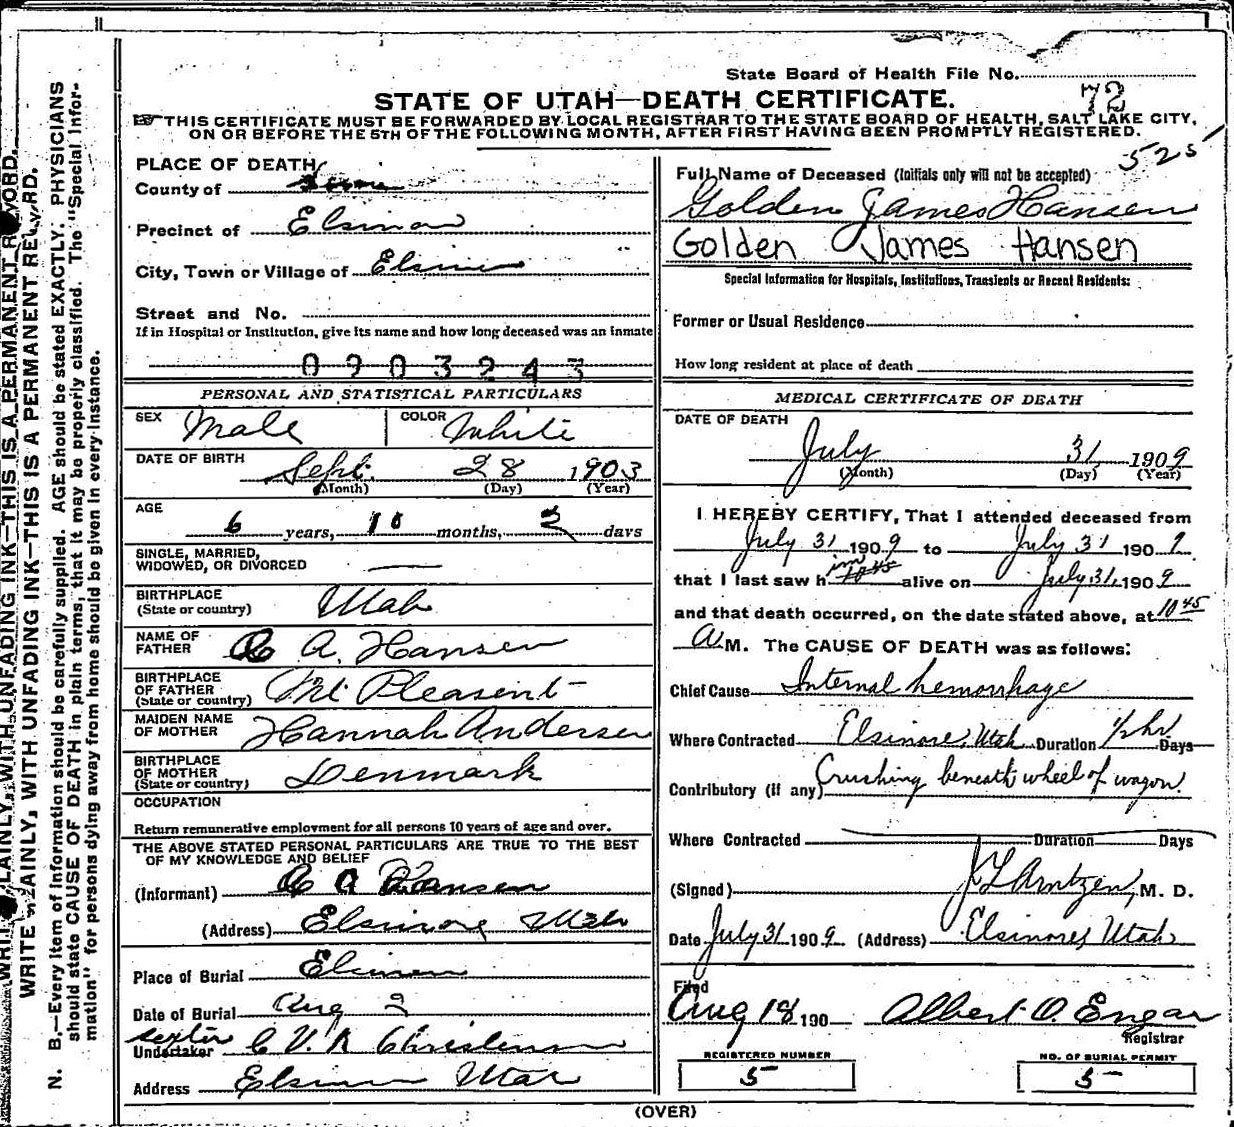 State Board of Health File No. 72
STATE OF UTAH—DEATH CERTIFICATE.
THIS CERTIFICATE MUST BE FORWARDED BY LOCAL REGISTRAR TO THE STATE BOARD OF HEALTH, SALT LAKE CITY,
ON OR BEFORE THE 5TH OF THE FOLLOWING MONTH, AFTER FIRST HAVING BEEN PROMPTLY REGISTERED.
525
PLACE OF DEATH
County of
Precinct of Elsinore
City, Town or Village of Elsinore
Street and No.
If in Hospital or Institution, give its name and how long deceased was an inmate
0903243
PERSONAL AND STATISTICAL PARTICULARS
SEX Male COLOR White
DATE OF BIRTH Sept. 28 1903
(Month) (Day) (Year)
AGE
6 years, 10 months, 2 days
SINGLE, MARRIED,
WIDOWED, OR DIVORCED —
BIRTHPLACE
(State or country) Utah
NAME OF
FATHER A. Hansen
BIRTHPLACE
OF FATHER
(State or country) Mt Pleasent
MAIDEN NAME
OF MOTHER Hannah Andersen
BIRTHPLACE
OF MOTHER
(State or country) Denmark
OCCUPATION
Return remunerative employment for all persons 10 years of age and over.
THE ABOVE STATED PERSONAL PARTICULARS ARE TRUE TO THE BEST
OF MY KNOWLEDGE AND BELIEF
(Informant) A Hansen
(Address) Elsinore Utah
Place of Burial Elsinore
Date of Burial Aug 2
sexton
Undertaker C V R Christensen
Address Elsinore Utah
Full Name of Deceased (Initials only will not be accepted)
Golden James Hansen
Golden James Hansen
Special Information for Hospitals, Institutions, Transients or Recent Residents:
Former or Usual Residence
How long resident at place of death
MEDICAL CERTIFICATE OF DEATH
DATE OF DEATH
July 31 1909
(Month) (Day) (Year)
I HEREBY CERTIFY, That I attended deceased from
July 31 1909 to July 31 1909
that I last saw him 10 45 alive on July 31, 1909
and that death occurred, on the date stated above, at 10 45
A M. The CAUSE OF DEATH was as follows:
Chief Cause Internal hemorrhage
Where Contracted Elsinore, Utah Duration 1/2 hr Days
Contributory (if any) Crushing beneath wheel of wagon.
Where Contracted Duration Days
(Signed) Arntzen, M. D.
Date July 31 1909 (Address) Elsinore, Utah
Filed
Aug 18 190 Albert O. Engar
Registrar
REGISTERED NUMBER
5
NO. OF BURIAL PERMIT
5
(OVER)
WRITE PLAINLY, WITH UNFADING INK—THIS IS A PERMANENT RECORD.
WRITE PLAINLY, WITH UNFADING INK—THIS IS A PERMANENT RECORD.
N. B.—Every item of information should be carefully supplied. AGE should be stated EXACTLY. PHYSICIANS
should state CAUSE OF DEATH in plain terms, that it may be properly classified. The "Special Infor-
mation" for persons dying away from home should be given in every instance.